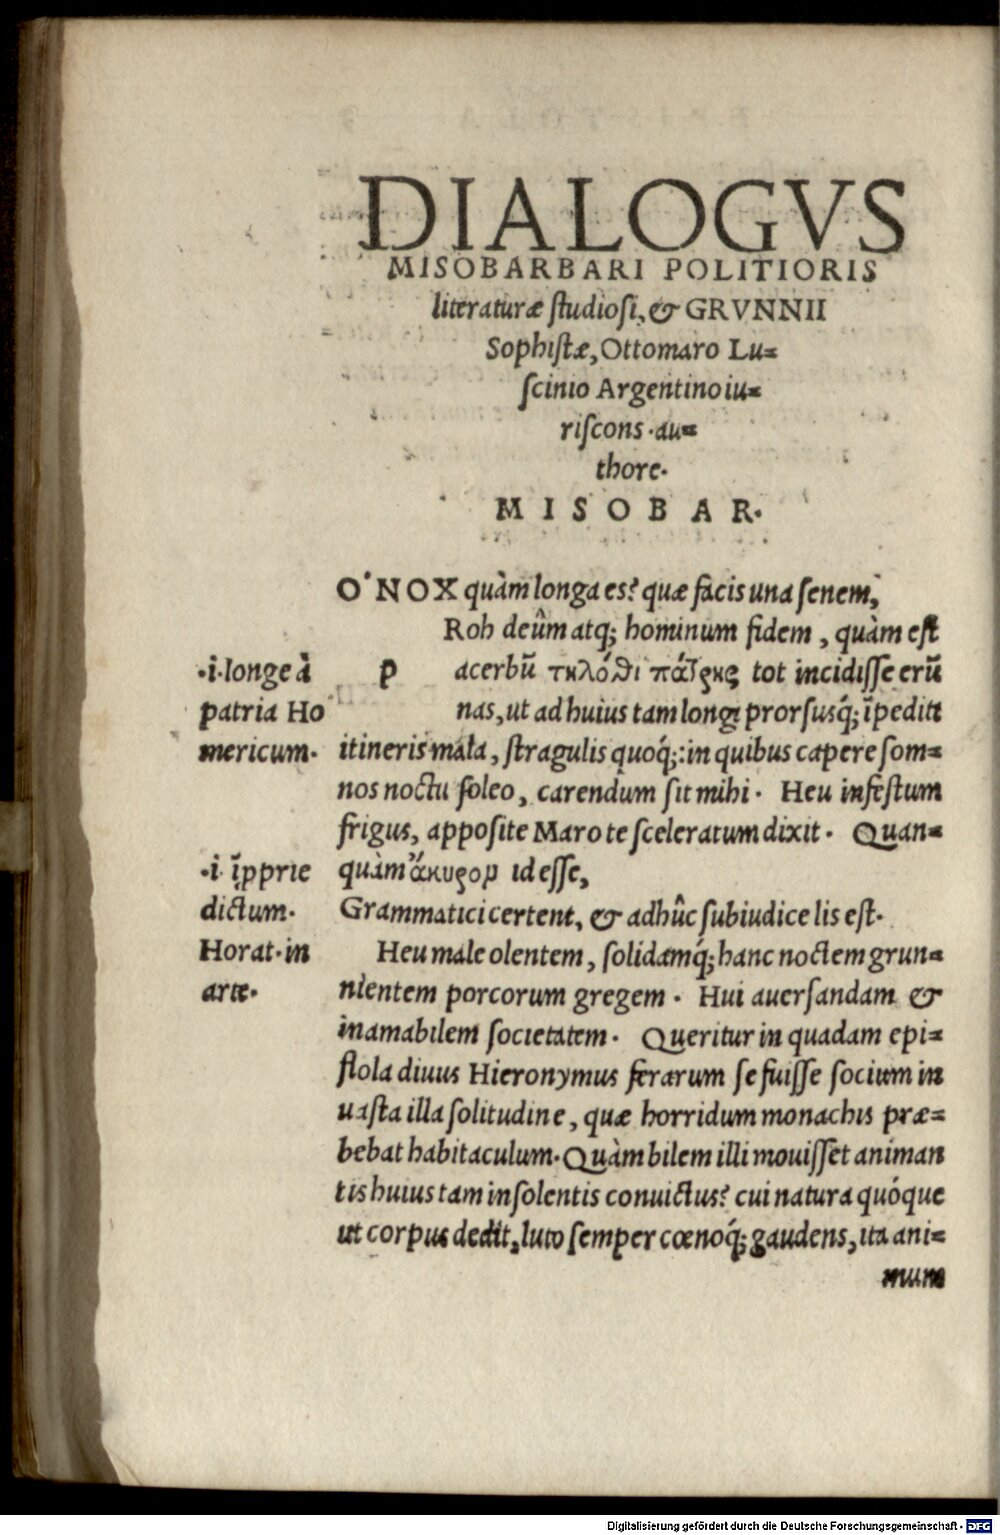 DIALOGVS
MISOBARBARI POLITIORIS
literaturæ ſtudioſi, & GRVNNII
Sophiſtæ, Ottomaro Lu=
ſcinio Argentino iu=
riſcons. au=
thore.
MISOBAR.
O' NOX quàm longa es? quæ facis una ſenem,
Roh deûm atq; hominum fidem, quàm eſt
p
acerbũ τηλόθι πάτρης tot incidiſſe erũ
nas, ut ad huius tam longi prorſusq́; ĩpediti
itineris mala, ſtragulis quoq́;: in quibus capere ſom=
nos noctu ſoleo, carendum ſit mihi. Heu infeſtum
frigus, appoſite Maro te ſceleratum dixit. Quan=
quàm ἄκυρον id eſſe,
Grammatici certent, & adhûc ſub iudice lis eſt.
Heu male olentem, ſolidamq́; hanc noctem grun=
nientem porcorum gregem. Hui auerſandam &
inamabilem ſocietatem. Queritur in quadam epi=
ſtola diuus Hieronymus ferarum ſe fuiſſe ſocium in
uaſta illa ſolitudine, quæ horridum monachis præ=
bebat habitaculum. Quàm bilem illi mouiſſet animan
tis huius tam inſolentis conuictus? cui natura quóque
ut corpus dedit, luto ſemper cœnoq́; gaudens, ita ani=
mum
.i. longe à
patria Ho
mericum.
.i. ĩpprie
dictum.
Horat. in
arte.
Digitalisierung gefördert durch die Deutsche Forschungsgemeinschaft - DFG